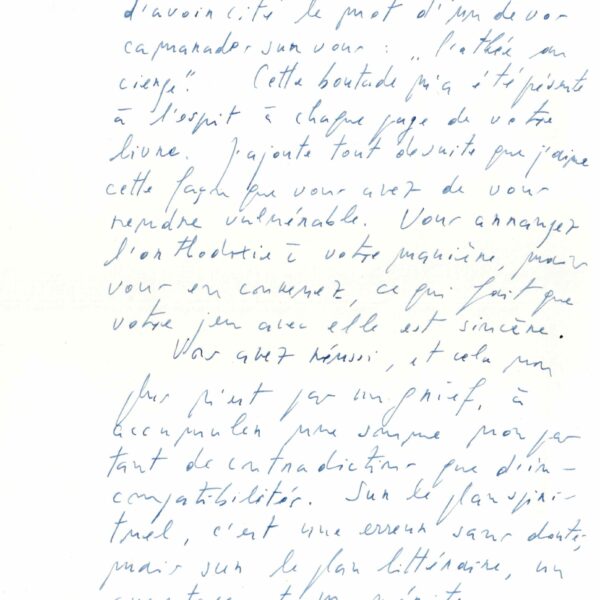 d'avoir cité le mot d'un de vos
camarades sur vous : „l'athée au
cierge". Cette boutade m'a été présente
à l'esprit à chaque page de votre
livre. J'ajoute tout de suite que j'aime
cette façon que vous avez de vous
rendre vulnérable. Vous arrangez
l'orthodoxie à votre manière, mais
vous en convenez, ce qui fait que
votre jeu avec elle est sincère.
Vous avez réussi, et cela non
plus n'est pas un grief, à
accumuler une somme non pas
tant de contradictions que d'in-
compatibilités. Sur le plan spiri-
tuel, c'est une erreur sans doute,
mais sur le plan littéraire, un